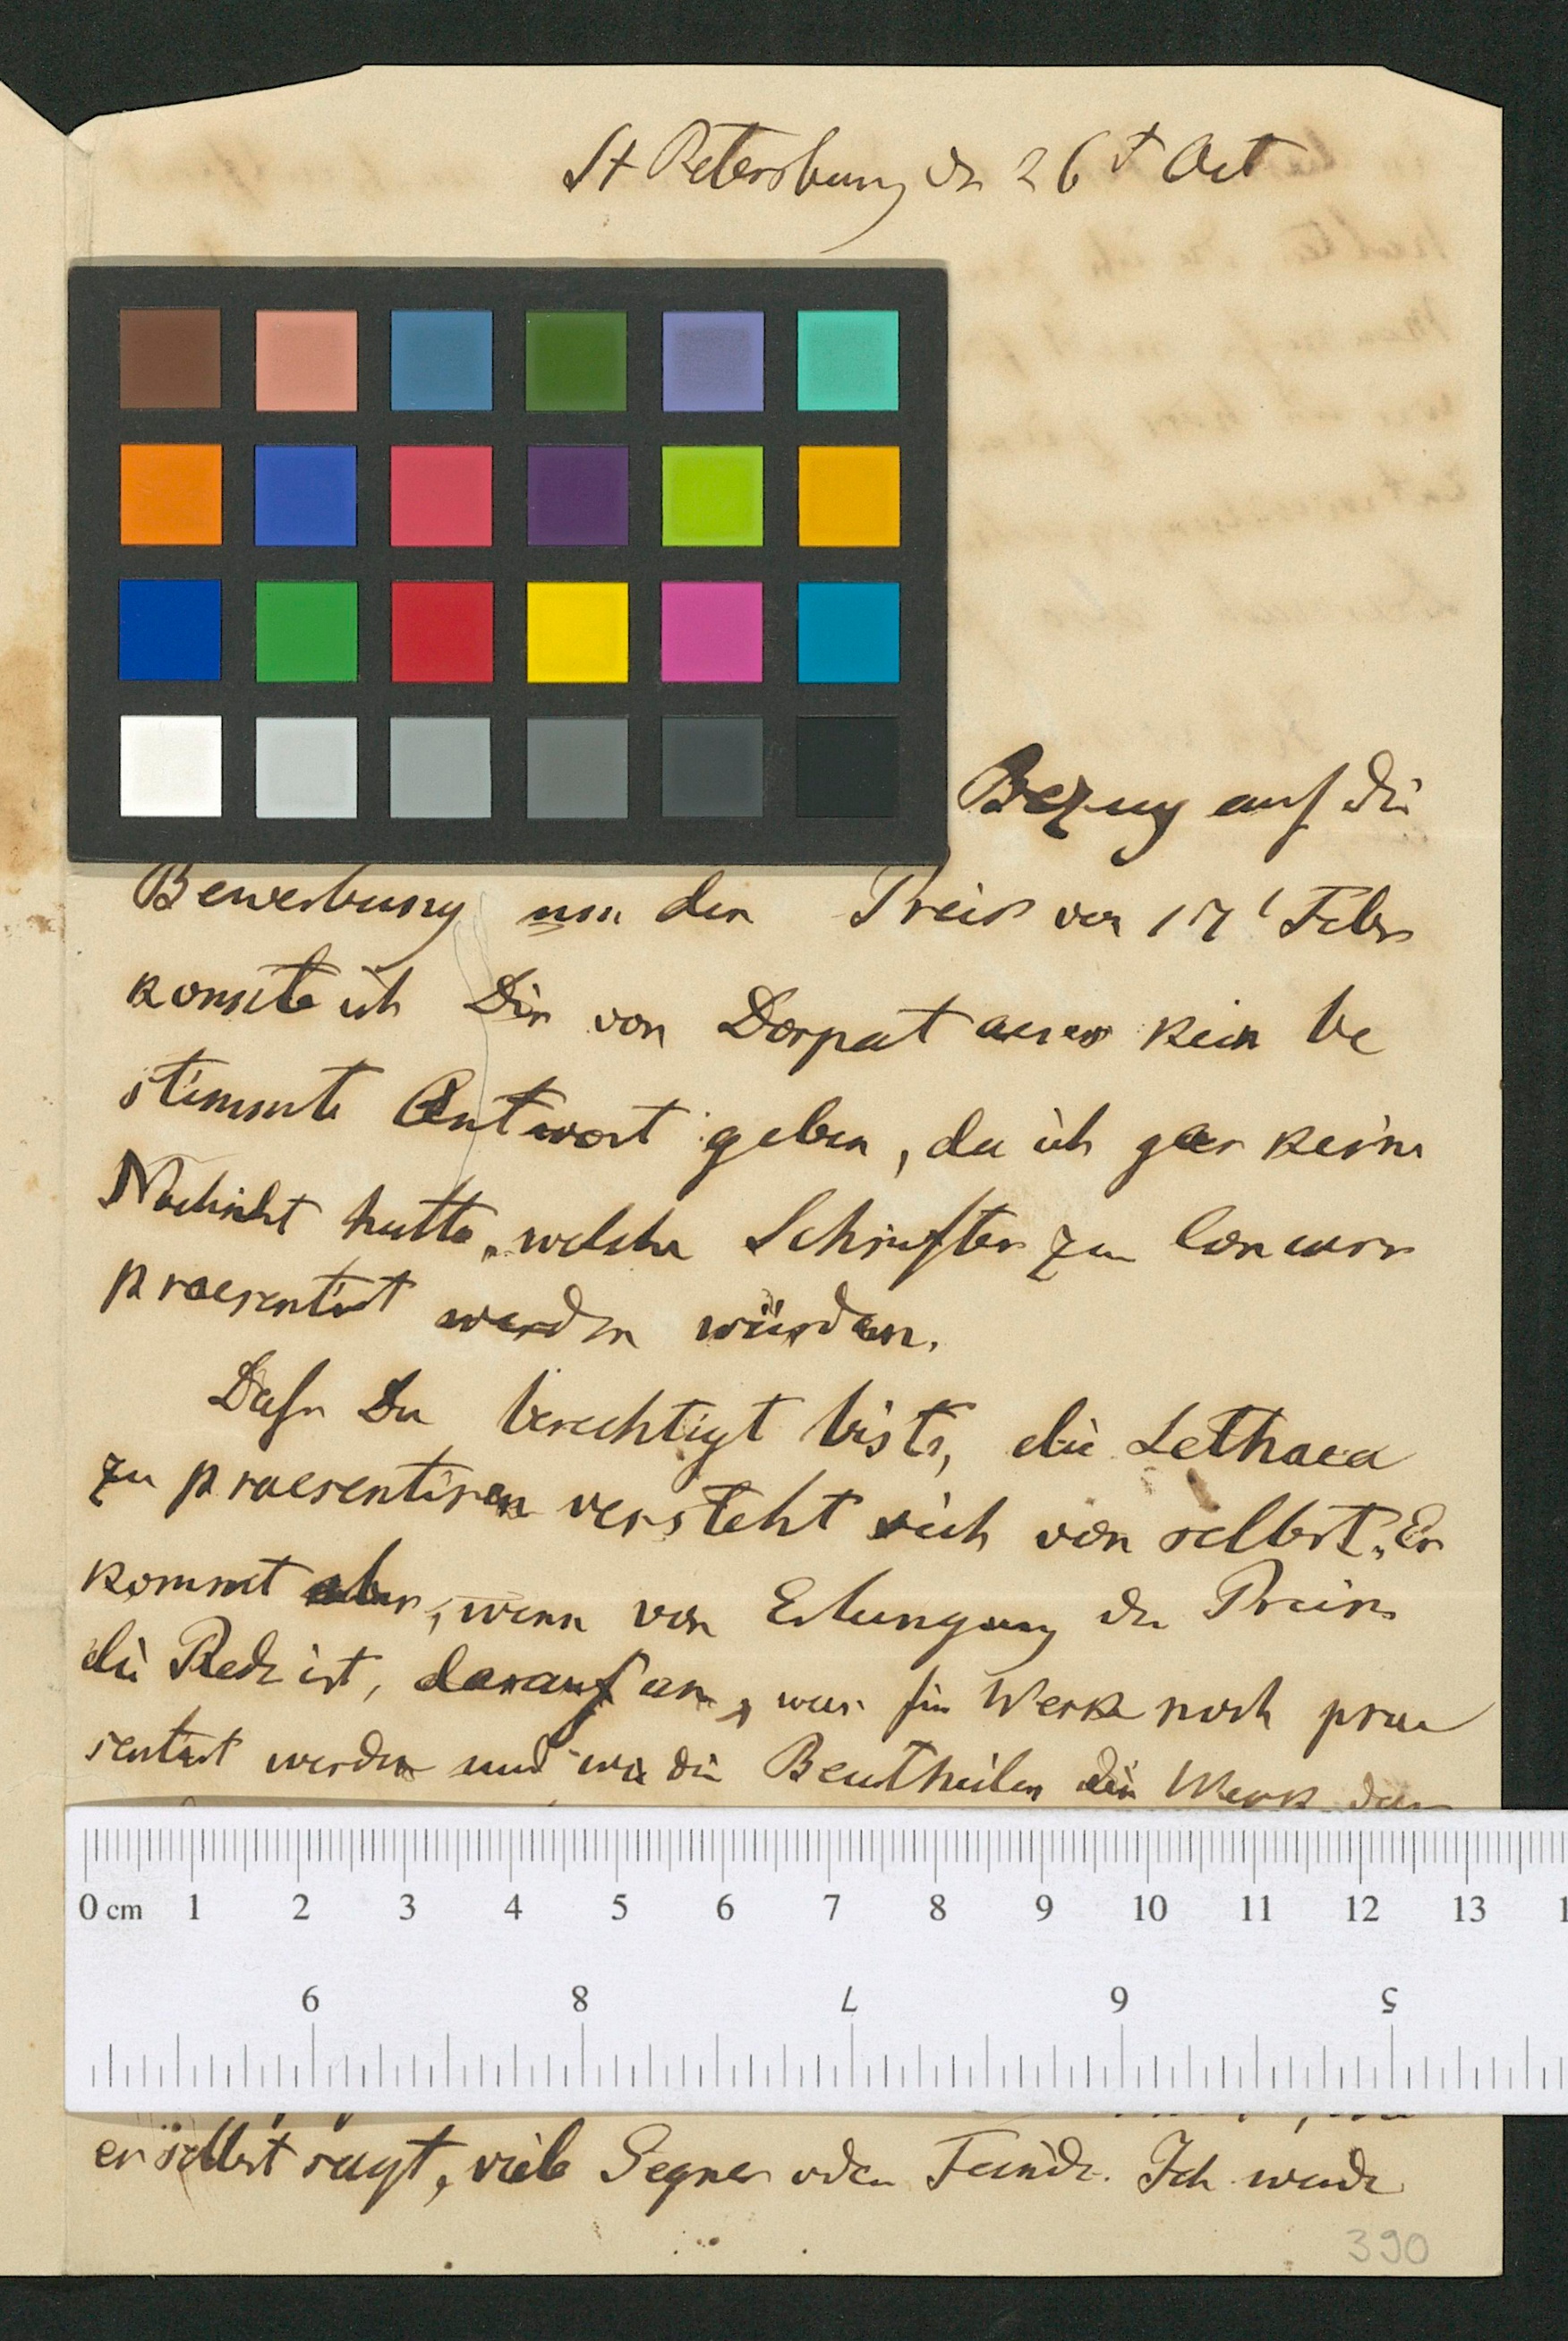 St Petersburg dn 26t Oct
Bezug auf die
Bewerbung um den Preis von 17t Febr
konnte ich Dir von Dorpat aus kein be
stimmte Antwort geben, da ich gar keine
Nachricht hatte, welche Schriften zum Concurs
praesentirt werden würden.
Dass Du berechtigt bist, die Lethaea
zu praesentiren versteht sich von selbst. Es
kommt aber, wenn von Erlangung des Preises
die Rede ist, darauf an, was für Werke noch prae
sentirt werden und wie die Beurtheiler die Werk
0 cm 1 2 3 4 5 6 7 8 9 10 11 12 13
9 8 7 6 5
er selbst sagt, viele Gegner oder Feinde. Ich werde
390